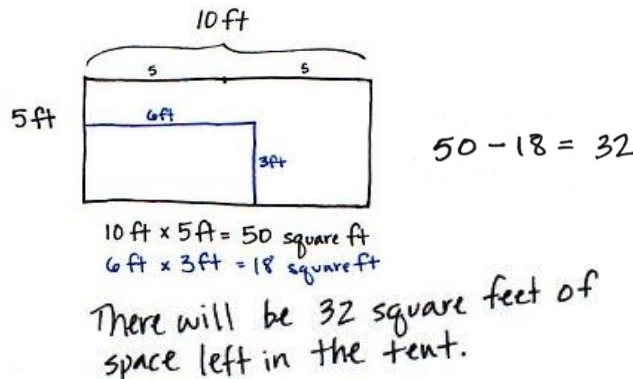 10ft
5 5
5ft
6ft
3ft
50 - 18 = 32
10 ft x 5 ft = 50 square ft
6 ft x 3 ft = 18 square ft
There will be 32 square feet of
space left in the tent.